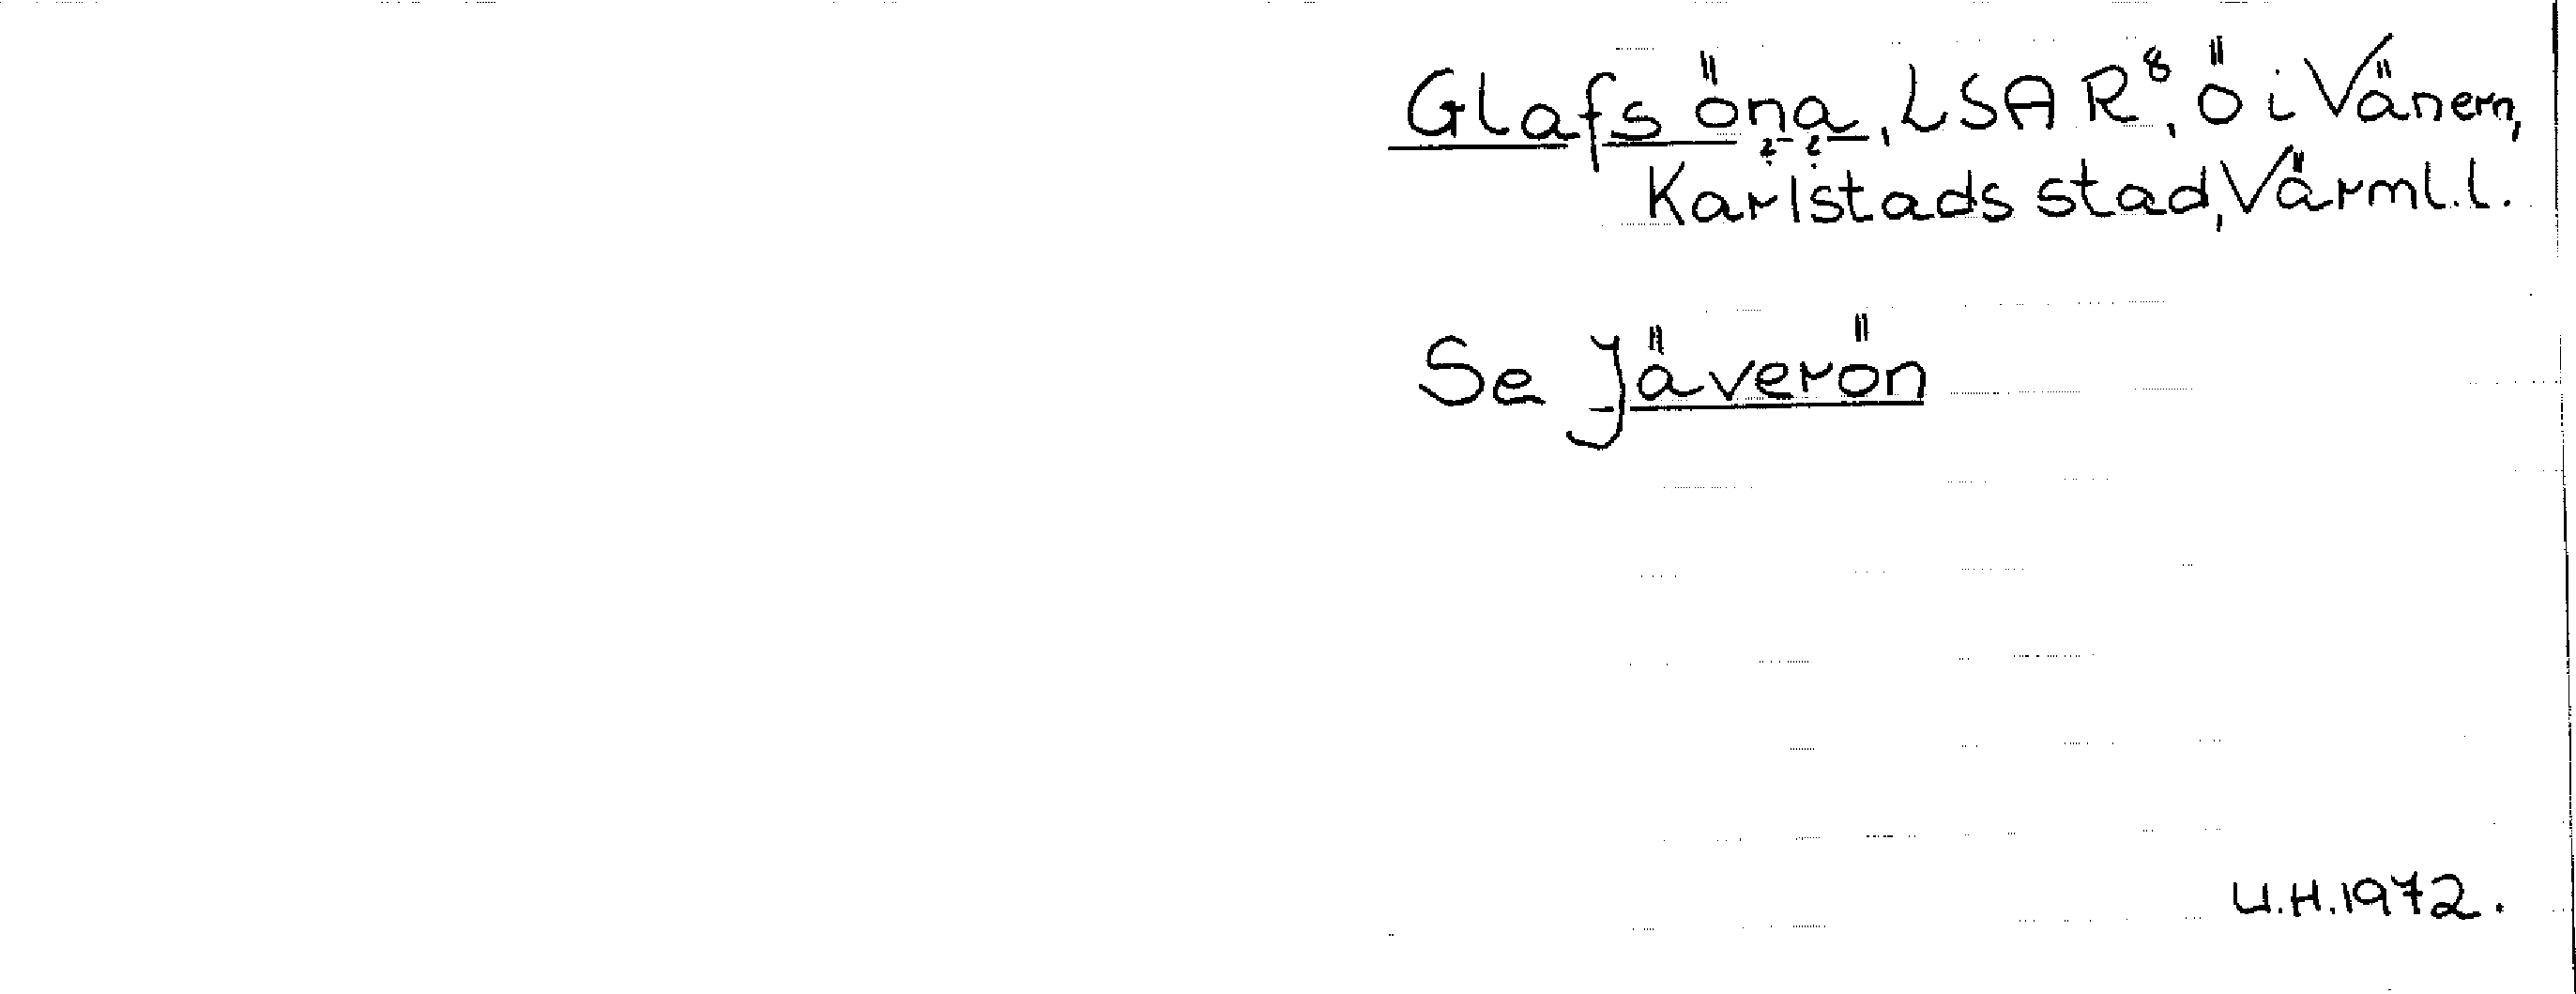 Glafs öna, LSA R⁸, ö i Vänern,
? ?
Karlstads stad, Värml. l.
Se Jäverön
U.H. 1972.